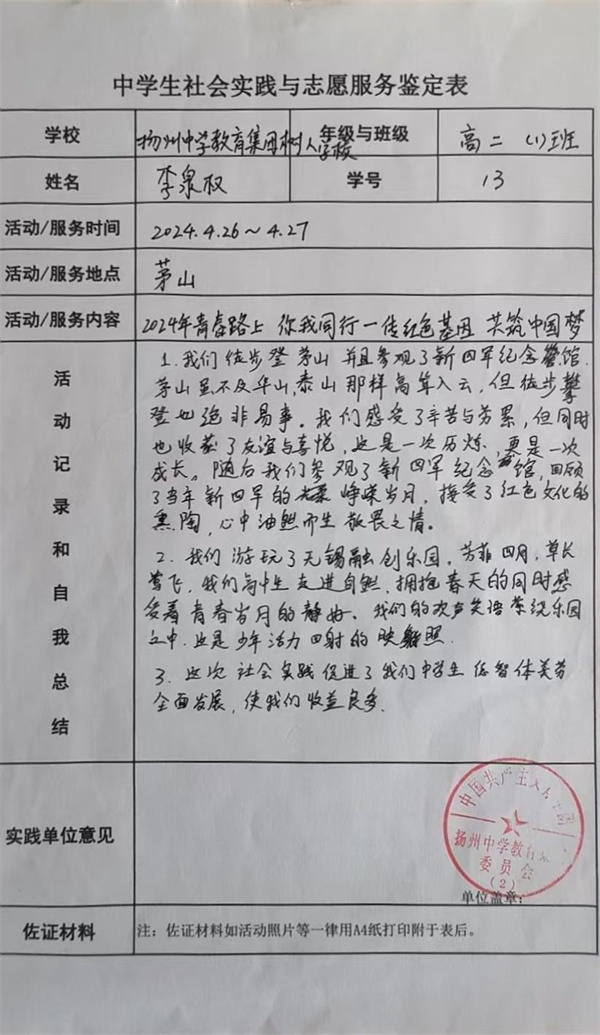 中学生社会实践与志愿服务鉴定表
学校 扬州中学教育集团树人学校 年级与班级 高二 (1)班
姓名 李泉权 学号 13
活动/服务时间 2024.4.26～4.27
活动/服务地点 茅山
活动/服务内容 2024年青春路上 你我同行—传红色基因 共筑中国梦
活动记录和自我总结
1.我们徒步登茅山 并且参观了新四军纪念馆.
茅山虽不及华山,泰山那样高耸入云,但徒步攀
登也绝非易事。我们感受了辛苦与劳累,但同时
也收获了友谊与喜悦,这是一次历炼,更是一次
成长。随后我们参观了新四军纪念馆,回顾
了当年新四军的峥嵘岁月,接受了红色文化的
熏陶,心中油然而生敬畏之情。
2.我们游玩了无锡融创乐园.芳菲四月,草长
莺飞,我们高中生走进自然,拥抱春天的同时感
受着青春岁月的静好.我们的欢声笑语萦绕乐园
之中.这是少年活力四射的映照.
3.这次社会实践促进了我们中学生德智体美劳
全面发展,使我们收益良多.
实践单位意见
中国共产主义
扬州中学教育
委员会
(2)
单位盖章：
佐证材料 注：佐证材料如活动照片等一律用A4纸打印附于表后。